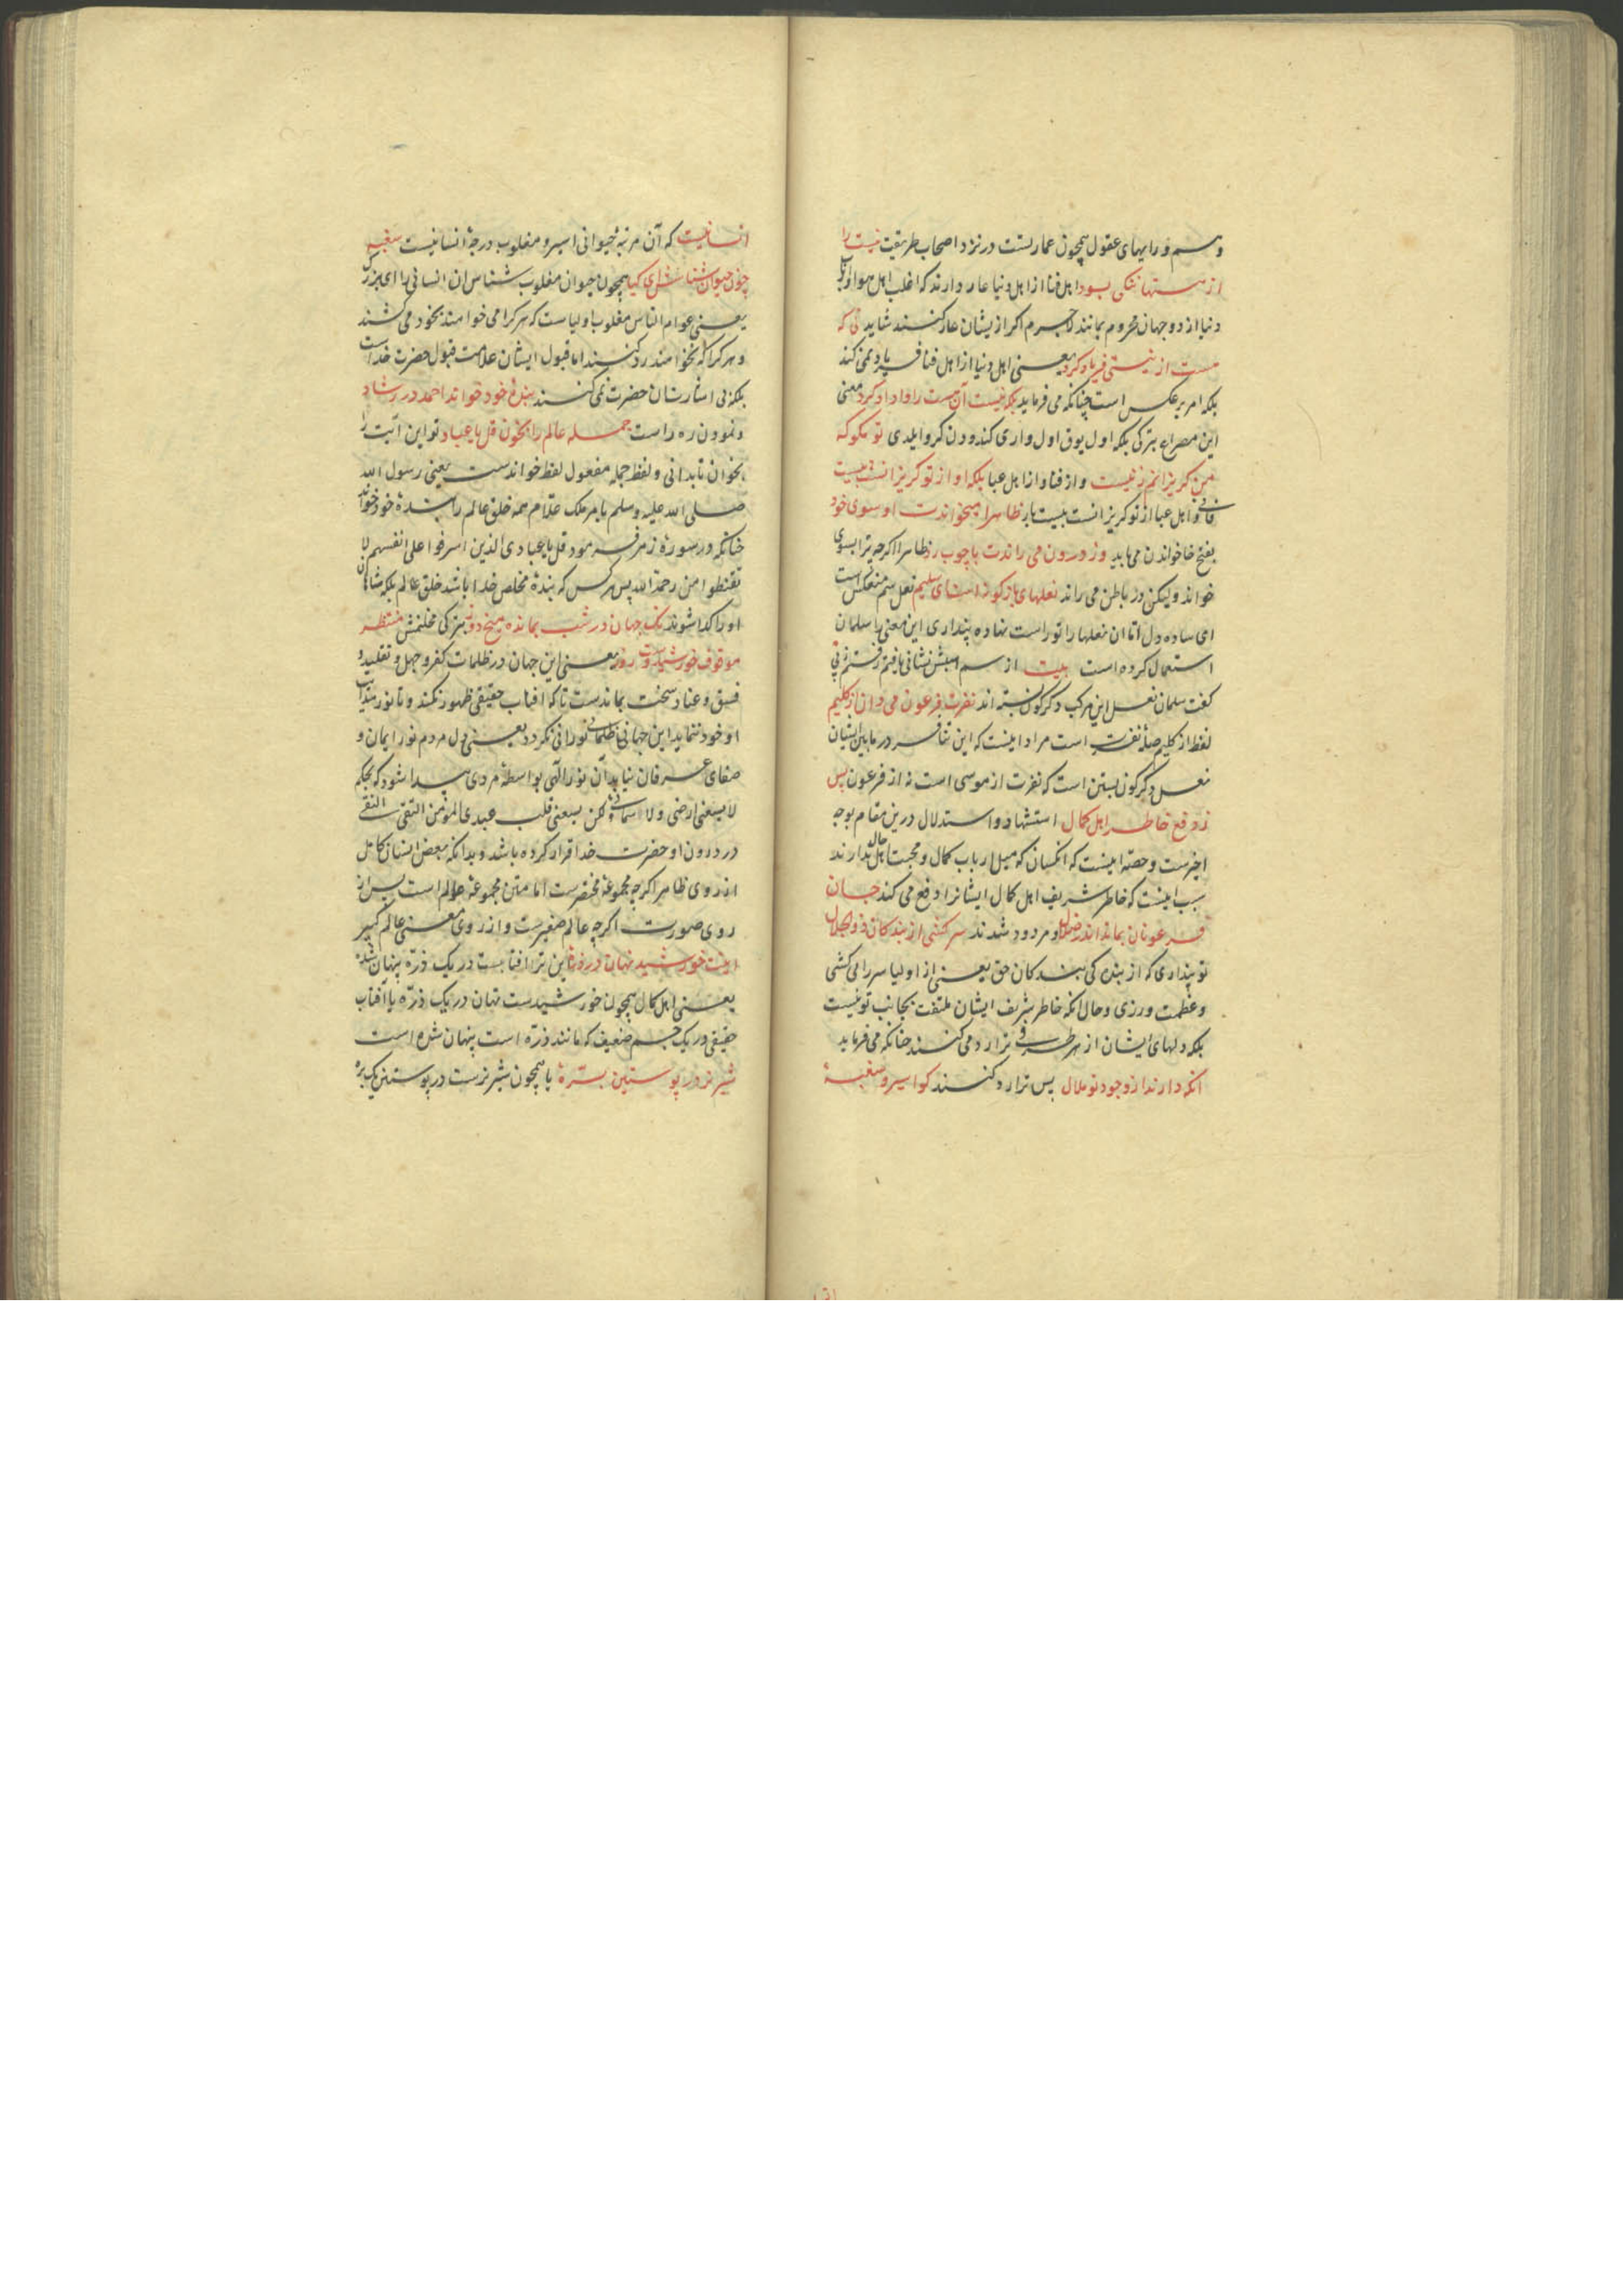 وهم و رایهای عقول همچون عمارتست در نزد اصحاب طریقت نیست را
از هستها ننکی بود اهل فنا از اهل دنیا عار دارند که اغلب اهل هوا و
دنیا از دو جهان محروم بمانند لاجرم اکر ازیشان عار کنند شاید نی که
هست از نیستی فریاد کرد یعنی اهل دنیا از اهل فنا فریاد نمی کند
بلکه امر برعکس است چنانکه می فرماید بلکه نیست آن هست را واداد کرد معنی
این مصراع بترکی بلکه اول یوق اول واری کندودن کرو ایلدی تو مکو که
من کریزانم ز نیست و از فنا و از اهل عبا بلکه او از تو کریزانست بیست
فانی و اهل عبا از تو کریزانست بیست بار ظاهرا میخواندت او سوی خود
بفتح خا خواندن می باید وز درون می راندت با چوب رد ظاهرا اکرچه ترا بسوی
خواند ولیکن در باطن می راند نعلهای بازکونه است ای سلیم نعل سم منعکس است
ای ساده دل اتا ان نعلها را تو راست نهاده پنداری این معنی را سلمان
استعمال کرده است بیت از سم اسبش نشانی یافتم رفتم ز پی
کفت سلمان نعل این مرکب دکرکون بسته اند نفرت فرعون می دان از کلیم
لفظ از کلیم صلهٔ نفرت است مراد اینست که این تنافر در مابین ایشان
نعل دکرکون بستن است که نفرت از موسی است نه از فرعون پس
ز دفع خاطر اهل کمال استشهاد و استدلال درین مقام بوجه
اخرست و حصّه اینست که انکسان که میل ارباب کمال و محبت اهل حال ندارند
سبب اینست که خاطر شریف اهل کمال ایشانرا دفع می کند جان
فرعونان بماند اندر ضلال و مردود شدند سر کشی از بندکان ذو الجلال
تو پنداری که از بندی کی بندکان حق یعنی از اولیا سر را می کشی
و عظمت ورزی و حال انکه خاطر شریف ایشان ملتفت بجانب تو نیست
بلکه دلهای ایشان از هر طرفی ترا رد می کنند چنانکه می فرماید
انکه دارند از وجود تو ملال پس ترا رد کنند کو اسیر و سغبهٔ
انسانیست که آن مرتبهٔ حیوانی اسیر و مغلوب درجهٔ انسانیست سغبه
چون حیوان شناسش ای کیا همچون حیوان مغلوب شناس ان انسانی را ای بزرک
یعنی عوام الناس مغلوب اولیاست که هر کرا می خواهند بخود می کشند
و هر کرا که نخواهند رد کنند اما قبول ایشان علامت قبول حضرت خداست
بلکه بی اشارتشان حضرت نمی کنند بندهٔ خود خواند احمد در رشاد
و نمودن ره راست جمله عالم را بخوان قل یا عباد تو این آیت را
بخوان تا بدانی و لفظ جمله مفعول لفظ خواندست یعنی رسول الله
صلی الله علیه و سلم بامر ملک علّام همه خلق عالم را بندهٔ خود خواند
چنانکه در سورهٔ زمر فرمود قل یا عبادی الذین اسرفوا علی انفسهم لا
تقنطوا من رحمة الله پس هر کس که بندهٔ مخلص خدا باشد خلق عالم بلکه شاهان
او را کدا شوند نک جهان در شب بمانده میخ دوز بترکی مخلنمش منتظر
موقوف خورشیدست روز یعنی این جهان در ظلمات کفر و جهل و تقلید و
فسق و عناد سخت بماندست تا که افتاب حقیقی ظهور نکند و تا نور هدایت
او خود ننماید این جهانی ظلمانی نورانی نکردد یعنی دل مردم نور ایمان و
صفای عرفان نیابد آن نور الهی بواسطهٔ مردی پیدا شود که بحکم
لا یسعنی ارضی و لا سمائی و لکن یسعنی قلب عبدی المؤمن التقی النقی
در درون او حضرت خدا قرار کرده باشد و بدانکه بعض انسان کامل
از روی ظاهر اکرچه مجموعهٔ مختصرست اما متن مجموعهٔ عوالم است پس از
روی صورت اکرچه عالم صغیرست و از روی معنی عالم کبیر
اینت خورشید نهان در ذرهٔ این ترا افتابست در یک ذرّه پنهان شده
یعنی اهل کمال همچون خورشیدست نهان در یک ذرّه یا آفتاب
حقیقی در یک جسم ضعیف که مانند ذرّه است پنهان شده است
شیر نر در پوستین برّهٔ یا همچون شیر نرست در پوستین یک برّهٔ